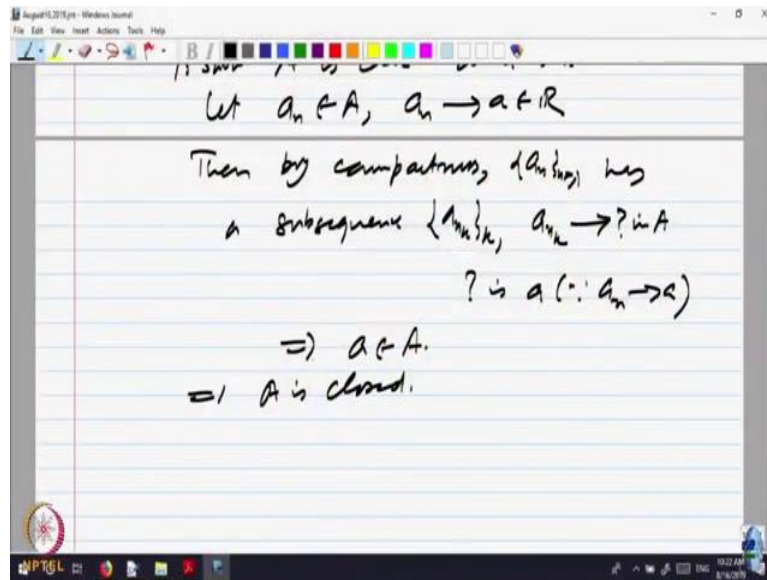 August15,2019.jnt - Windows Journal
File Edit View Insert Actions Tools Help
B I
Let aₙ ∈ A, aₙ → a ∈ ℝ
Then by compactness, {aₙ}ₙ≥₁ has
a subsequence {aₙₖ}ₖ, aₙₖ → ? in A
? is a (∵ aₙ → a)
⇒ a ∈ A.
⇒ A is closed.
NPTEL
ENG
10:22 AM
8/16/2019